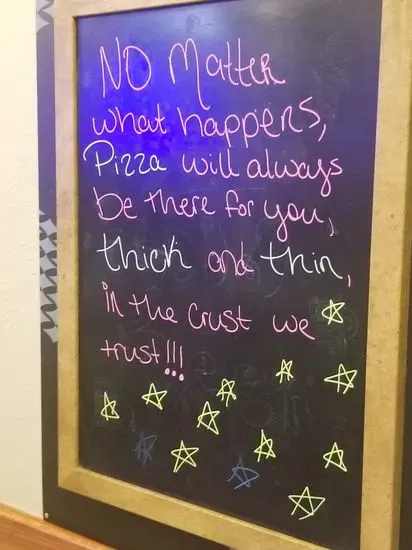 NO Matter
what happens,
Pizza will always
be there for you,
thick and thin,
in the Crust we
trust!!!